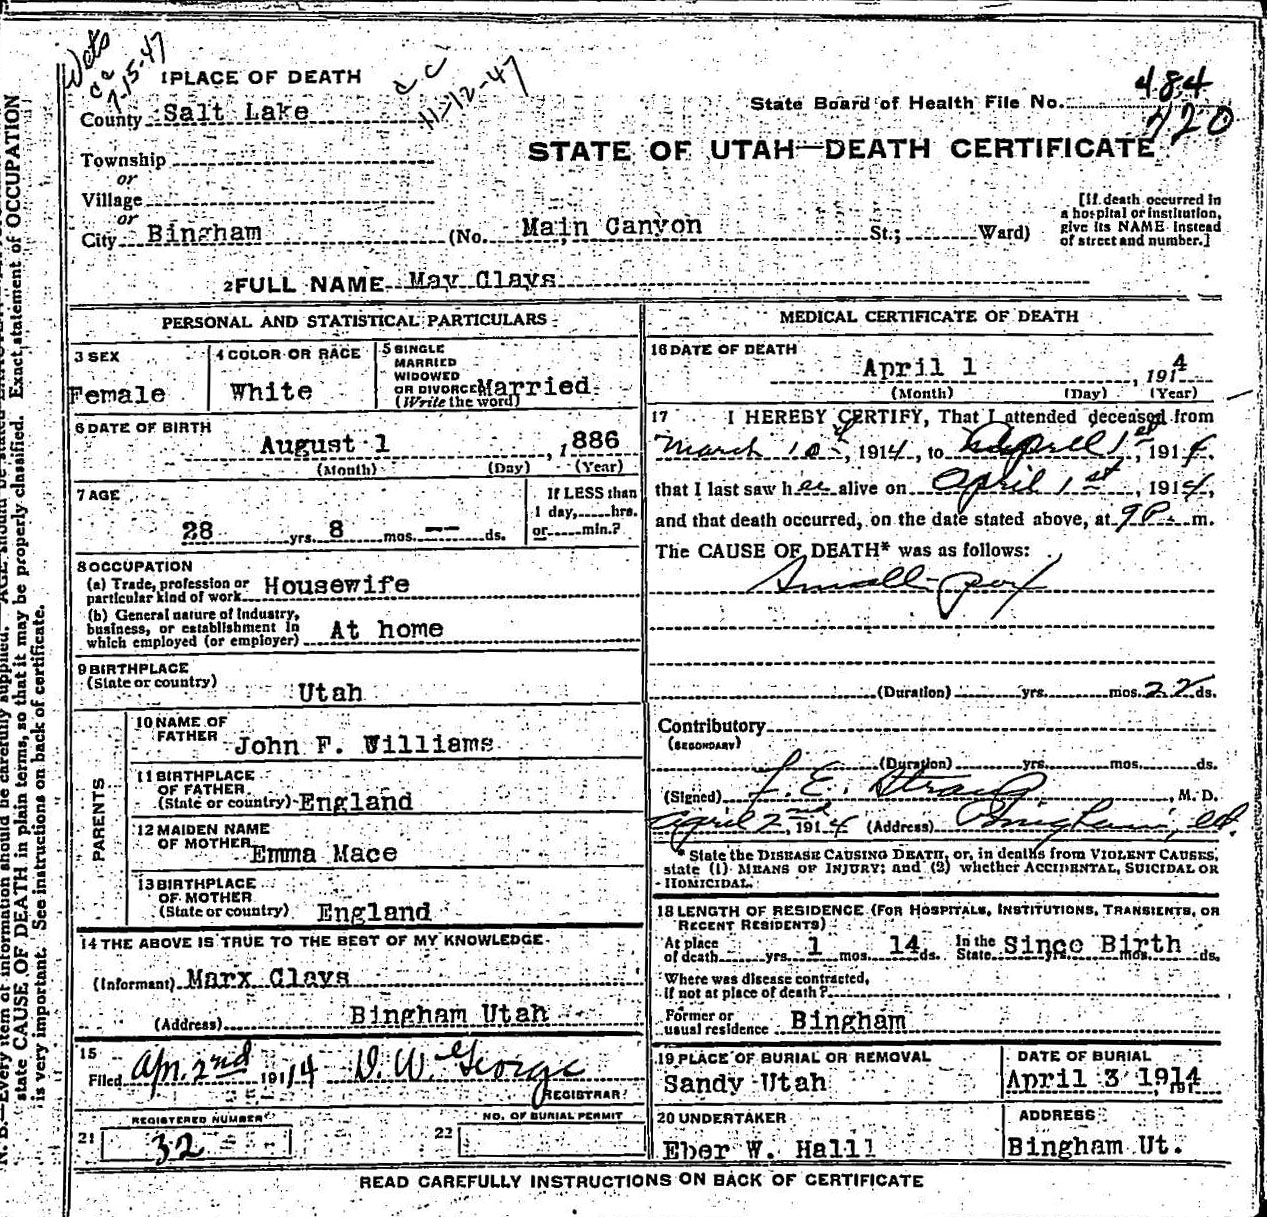 7-15-47
11-12-47
1 PLACE OF DEATH
County Salt Lake
State Board of Health File No. 484
720
STATE OF UTAH—DEATH CERTIFICATE
Township
or
Village
or
City Bingham (No. Main Canyon St.; Ward)
[If death occurred in
a hospital or institution,
give its NAME instead
of street and number.]
2 FULL NAME May Clays
PERSONAL AND STATISTICAL PARTICULARS
3 SEX
Female
4 COLOR OR RACE
White
5 SINGLE
MARRIED
WIDOWED
OR DIVORCED Married
(Write the word)
6 DATE OF BIRTH
August 1, 1886
(Month) (Day) (Year)
7 AGE
28 yrs. 8 mos. -- ds.
If LESS than
1 day, hrs.
or min.?
8 OCCUPATION
(a) Trade, profession or
particular kind of work Housewife
(b) General nature of Industry,
business, or establishment in
which employed (or employer) At home
9 BIRTHPLACE
(State or country)
Utah
PARENTS
10 NAME OF
FATHER John F. Williams
11 BIRTHPLACE
OF FATHER
(State or country) England
12 MAIDEN NAME
OF MOTHER Emma Mace
13 BIRTHPLACE
OF MOTHER
(State or country) England
14 THE ABOVE IS TRUE TO THE BEST OF MY KNOWLEDGE
(Informant) Marx Clays
(Address) Bingham Utah
15
Filed Apr. 2nd 191 14 D. W. George
REGISTRAR
REGISTERED NUMBER
21 32
NO. OF BURIAL PERMIT
22
MEDICAL CERTIFICATE OF DEATH
16 DATE OF DEATH
April 1, 1914
(Month) (Day) (Year)
17 I HEREBY CERTIFY, That I attended deceased from
March 10th, 1914, to April 1st, 1914,
that I last saw her alive on April 1st, 1914,
and that death occurred, on the date stated above, at 9 P. m.
The CAUSE OF DEATH* was as follows:
Small-pox
(Duration) yrs. mos. 22 ds.
Contributory
(SECONDARY)
(Duration) yrs. mos. ds.
(Signed) F. E. Straup, M. D.
April 2nd, 1914 (Address) Bingham, Ut.
* State the DISEASE CAUSING DEATH, or, in deaths from VIOLENT CAUSES,
state (1) MEANS OF INJURY; and (2) whether ACCIDENTAL, SUICIDAL OR
HOMICIDAL.
18 LENGTH OF RESIDENCE (FOR HOSPITALS, INSTITUTIONS, TRANSIENTS, OR
RECENT RESIDENTS)
At place
of death yrs. 1 mos. 14 ds. In the
State Since Birth yrs. mos. ds.
Where was disease contracted,
if not at place of death?
Former or
usual residence Bingham
19 PLACE OF BURIAL OR REMOVAL
Sandy Utah
DATE OF BURIAL
April 3 1914, 191
20 UNDERTAKER
Eber W. Halll
ADDRESS
Bingham Ut.
READ CAREFULLY INSTRUCTIONS ON BACK OF CERTIFICATE
N. B.—Every item of information should be carefully supplied. AGE should be stated
state CAUSE OF DEATH in plain terms, so that it may be properly classified. Exact statement of OCCUPATION
is very important. See instructions on back of certificate.